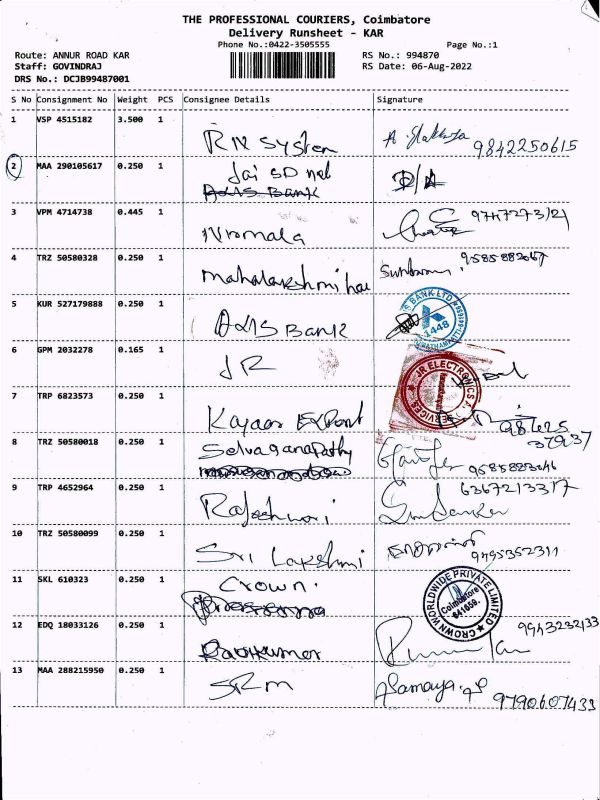 THE PROFESSIONAL COURIERS, Coimbatore
Delivery Runsheet - KAR
Phone No.:0422-3505555
Page No.:1
Route: ANNUR ROAD KAR
RS No.: 994870
Staff: GOVINDRAJ
RS Date: 06-Aug-2022
DRS No.: DCJB99487001
S No Consignment No Weight PCS Consignee Details Signature
1 VSP 4515182 3.500 1 RN System 9842250615
2 MAA 290105617 0.250 1 Jai SD
Axis Bank
3 VPM 4714738 0.445 1 Nirmala
4 TRZ 50580328 0.250 1 mahalakshmi
5 KUR 527179888 0.250 1 Axis Bank
BANK LTD
1448
6 GPM 2032278 0.165 1 JR
JR ELECTRONICS
SERVICES
7 TRP 6823573 0.250 1 Kayaar Export
37937
8 TRZ 50580018 0.250 1 Selvaganapathy
9 TRP 4652964 0.250 1 Rajeshwari 6367213317
10 TRZ 50580099 0.250 1 Sri Lakshmi 9495352311
11 SKL 610323 0.250 1 Crown.
CROWN WORLDWIDE PRIVATE LIMITED
Coimbatore
641659.
12 EDQ 18033126 0.250 1 Ravikumar 9943232133
13 MAA 288215950 0.250 1 SRM 9790607433